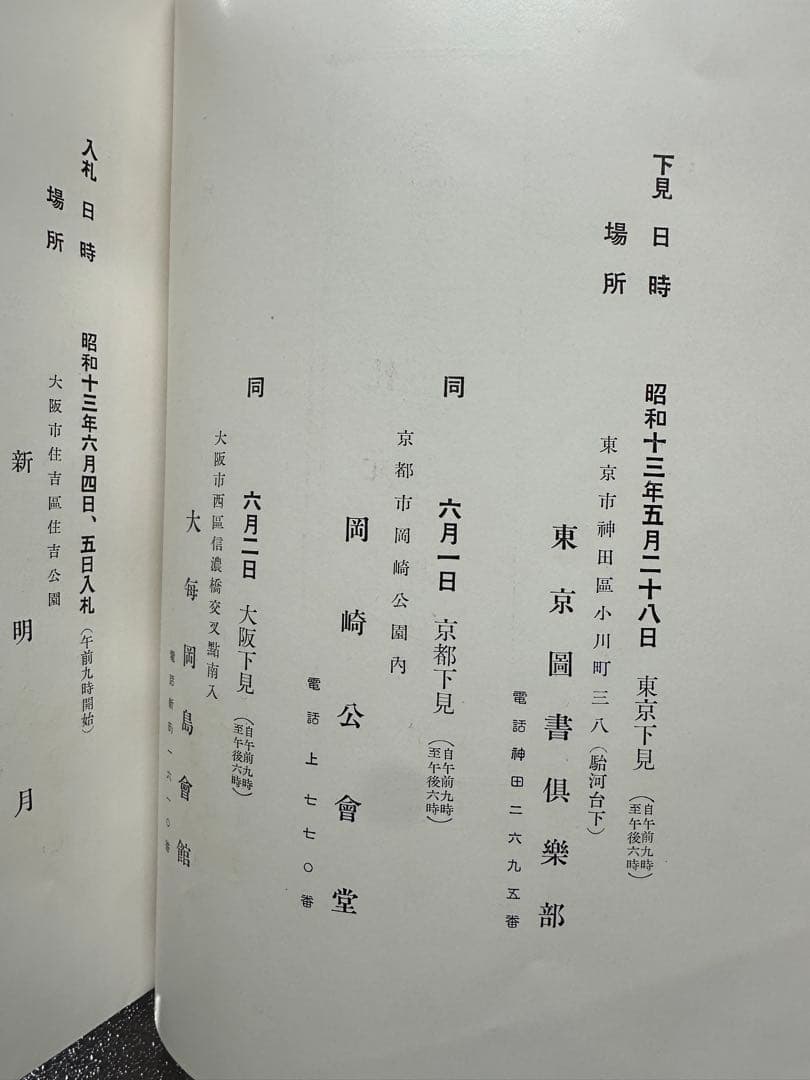 下見日時 昭和十三年五月二十八日 東京下見 (自午前九時至午後六時)
場所 東京市神田區小川町三八(駿河台下)
東京圖書倶樂部
電話神田二六九五番
同 六月一日 京都下見 (自午前九時至午後六時)
京都市岡崎公園内
岡崎公會堂
電話上七七〇番
同 六月二日 大阪下見 (自午前九時至午後六時)
大阪市西區信濃橋交叉點南入
大每岡島會館
入札日時 昭和十三年六月四日、五日入札 (午前九時開始)
場所 大阪市住吉區住吉公園
新明月